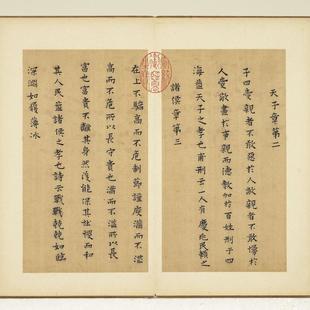 天子章第二
子曰愛親者不敢惡於人敬親者不敢慢於
人愛敬盡於事親而德教加於百姓刑于四
海蓋天子之孝也甫刑云一人有慶兆民賴之
諸侯章第三
在上不驕高而不危制節謹度滿而不溢
高而不危所以長守貴也滿而不溢所以長
富也富貴不離其身然後能保其社稷而和
其人民蓋諸侯之孝也詩云戰戰兢兢如臨
深淵如履薄冰